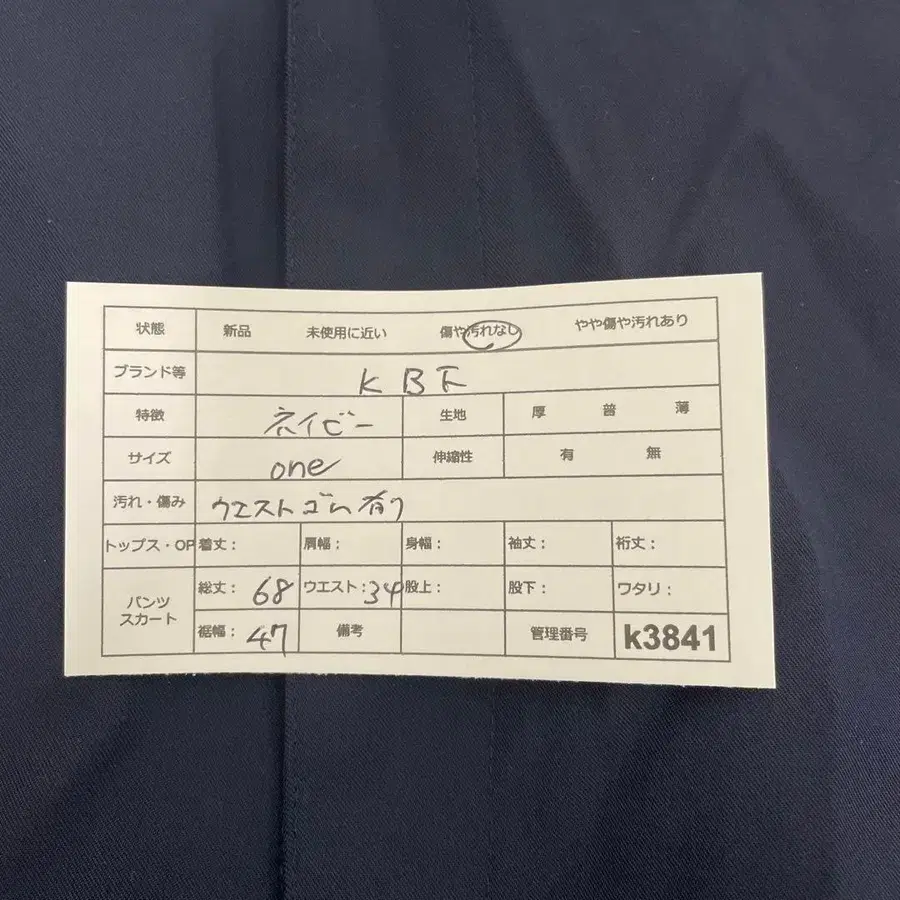 状態 新品 未使用に近い 傷や汚れなし やや傷や汚れあり
ブランド等 KBF
特徴 ネイビー 生地 厚 普 薄
サイズ one 伸縮性 有 無
汚れ・傷み ウエストゴム有り
トップス・OP 着丈: 肩幅: 身幅: 袖丈: 裄丈:
パンツ スカート 総丈: 68 ウエスト: 34 股上: 股下: ワタリ:
裾幅: 47 備考 管理番号 k3841